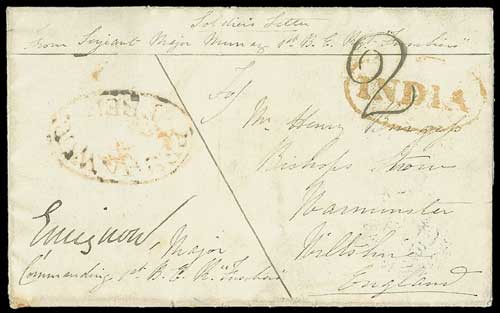 Soldier's Letter
From Serjeant Major Murray 1st B. E. R. "Fusiliers"
2
INDIA
To/
Mr. Henry
Bishops Strow
Warminster
Wiltshire
England
Major
Commanding 1st B. E. R. "Fusiliers"